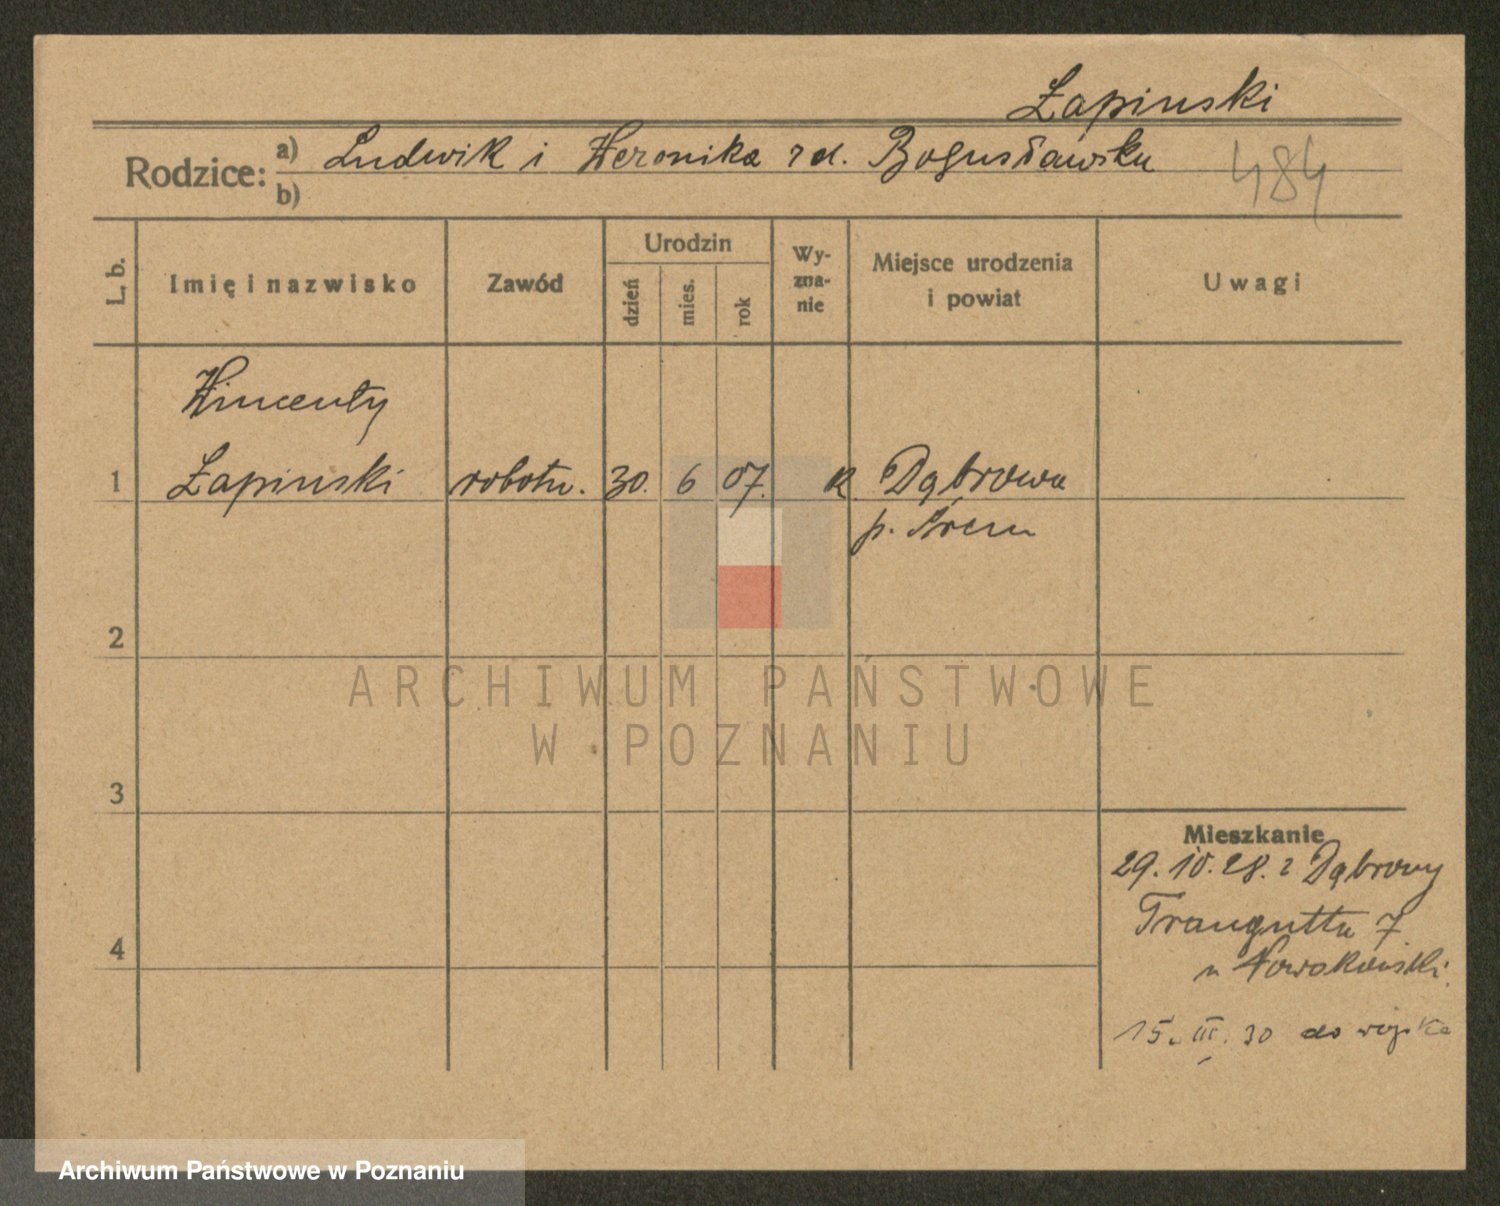 Łapinski
Rodzice:
a) Ludwik i Weronika zd. Bogusławska
b)
484
L. b.
Imię i nazwisko
Zawód
Urodzin
dzień
mies.
rok
Wy-
zna-
nie
Miejsce urodzenia
i powiat
Uwagi
Wincenty
1 Łapinski robotn. 30. 6 07. K. Dąbrowa
p. Śrem
2
ARCHIWUM PAŃSTWOWE
W POZNANIU
3
Mieszkanie
29.10.28. z Dąbrowy
4 Traugutta 7
u Nowakowski.
15. III. 30 do wojska
Archiwum Państwowe w Poznaniu